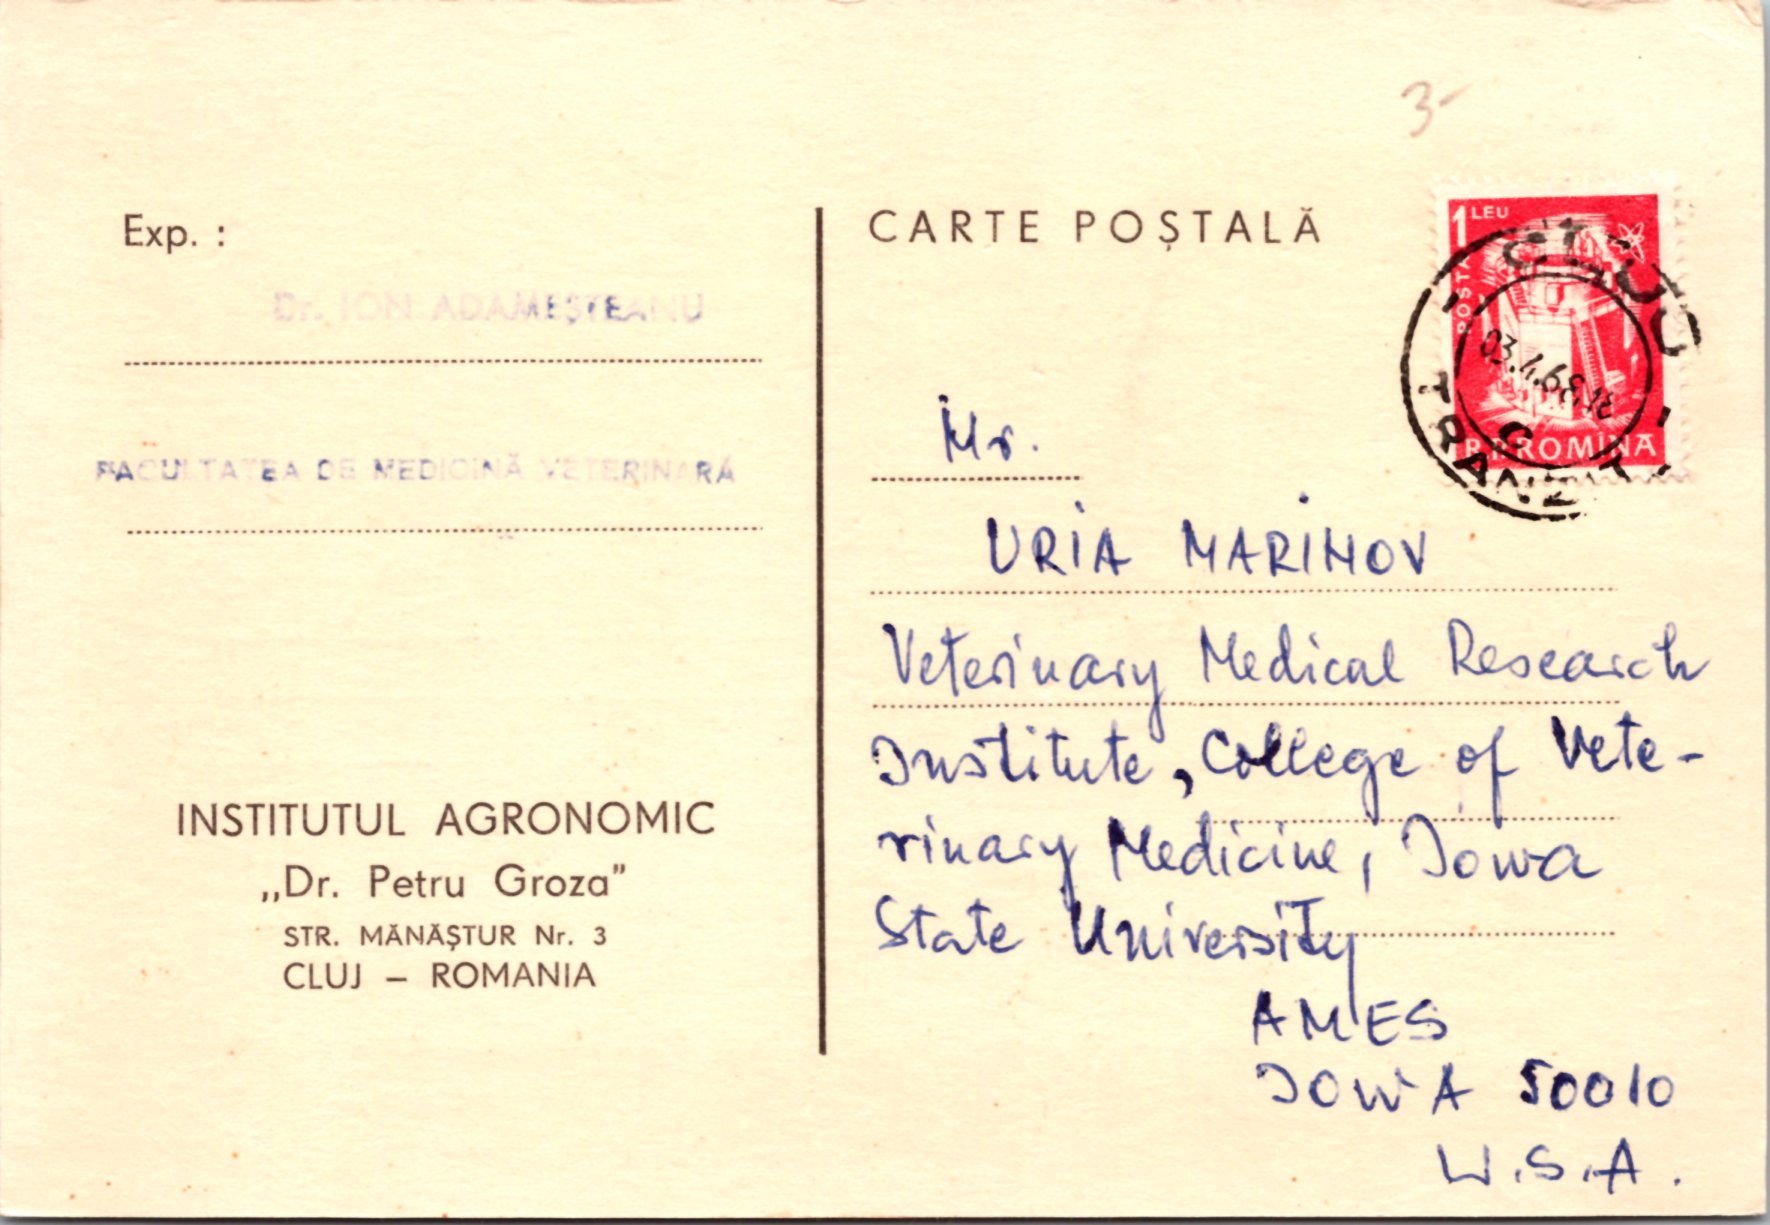 3-
Exp. :
Dr. ION ADAMEȘTEANU
FACULTATEA DE MEDICINĂ VETERINARĂ
INSTITUTUL AGRONOMIC
„Dr. Petru Groza”
STR. MĂNĂȘTUR Nr. 3
CLUJ – ROMANIA
CARTE POȘTALĂ
1 LEU
POSTA
R.P.ROMÎNA
CLUJ
TRANZIT
Mr.
URIA MARIMOV
Veterinary Medical Research
Institute, College of Vete-
rinary Medicine, Iowa
State University
AMES
IOWA 50010
U.S.A.